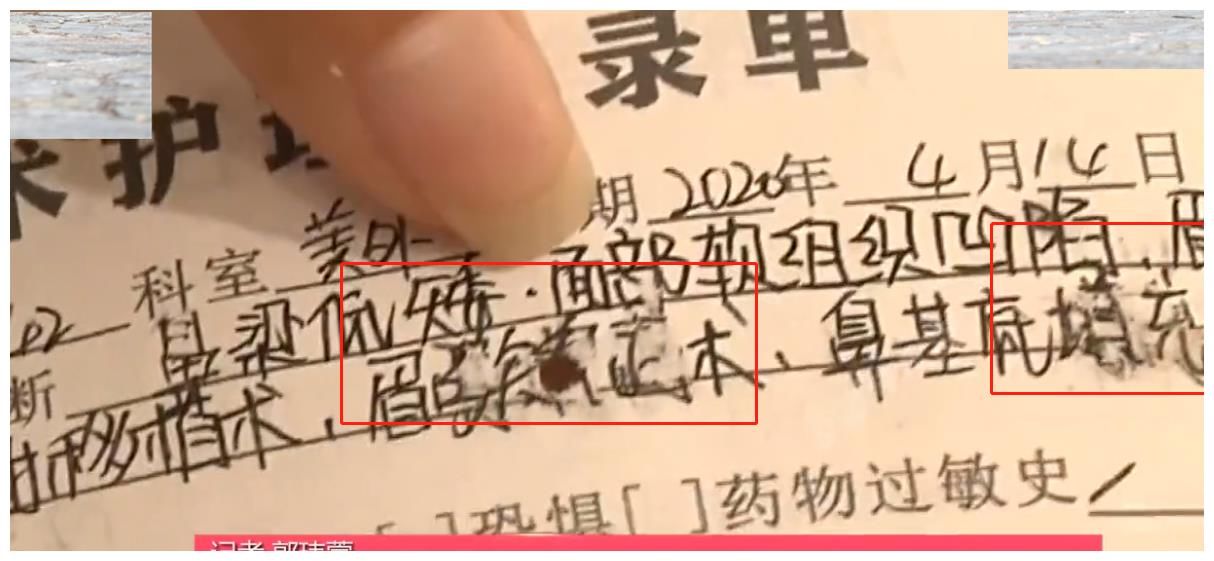 护 录单
期 2020年 4月14日
科室 美外
鼻梁低矮.面部软组织凹陷.眉
断
移植术.眉 术.鼻基底填充
恐惧[ ]药物过敏史 /
记者 郭